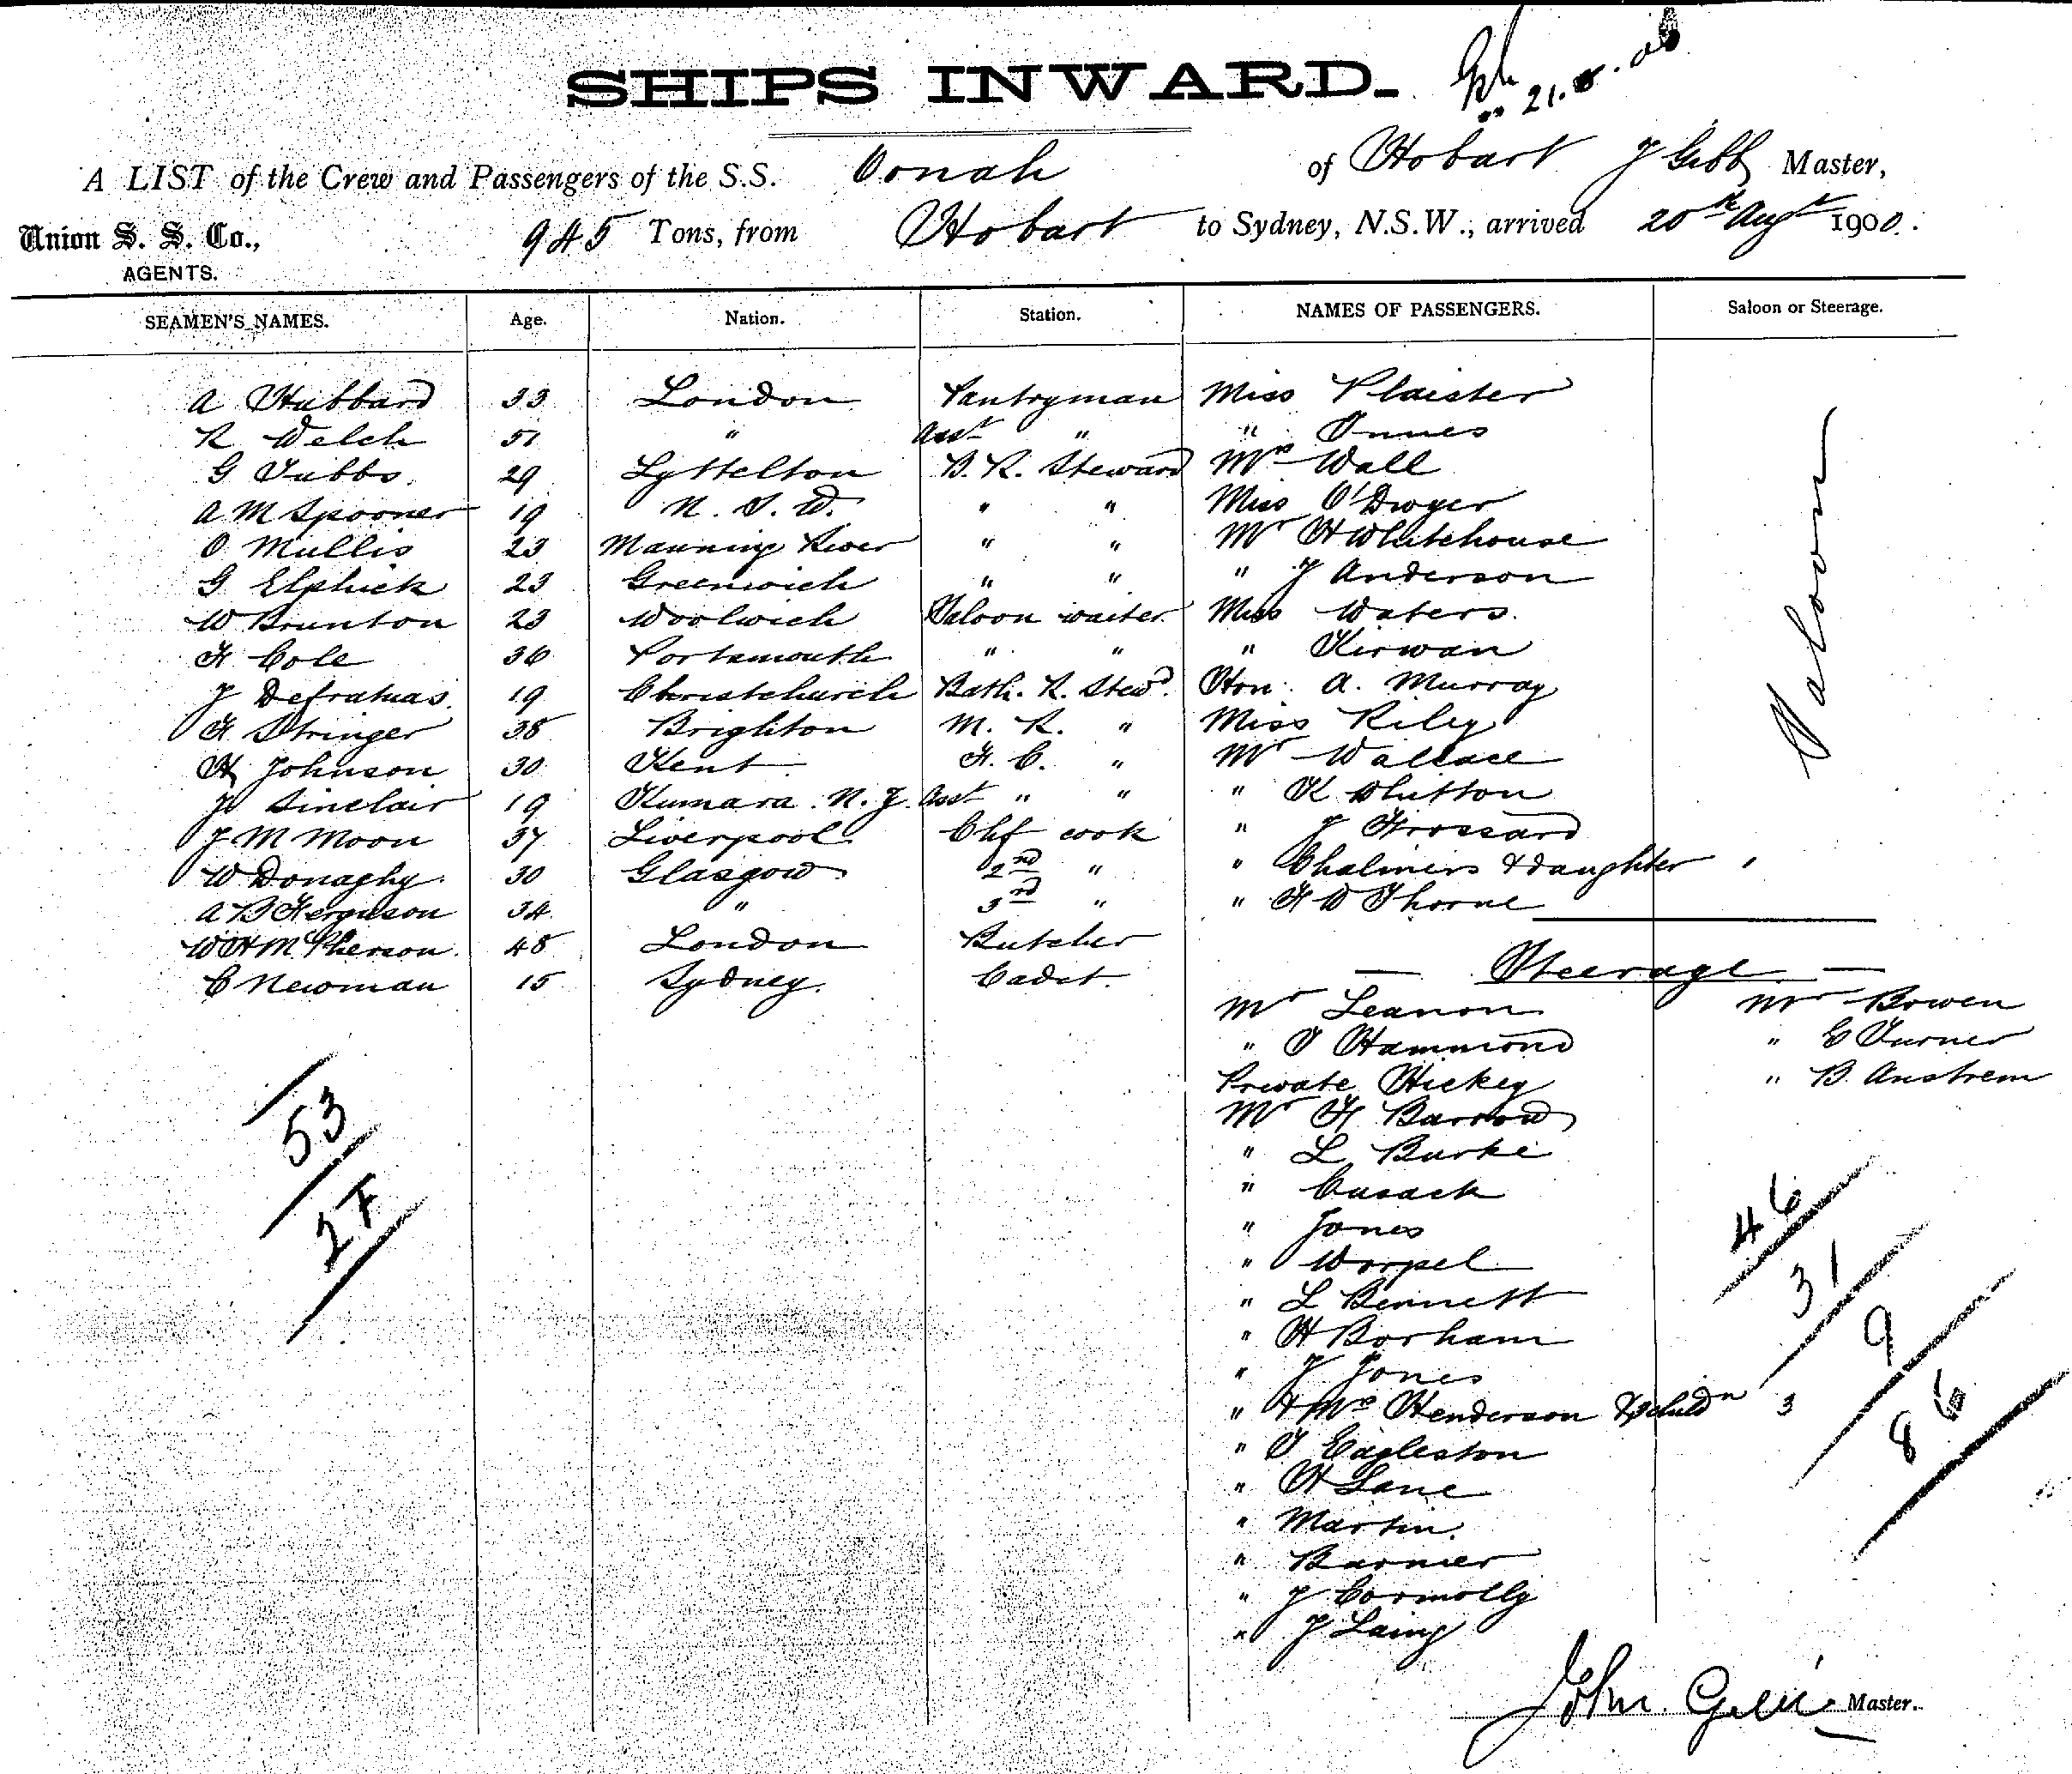 SHIPS INWARD.
21.8.00
A LIST of the Crew and Passengers of the S.S. Oonah of Hobart J Gibb Master,
Union S. S. Co., 945 Tons, from Hobart to Sydney, N.S.W., arrived 20th Augt 1900.
AGENTS.
SEAMEN'S NAMES. Age. Nation. Station. NAMES OF PASSENGERS. Saloon or Steerage.
A Hubbard 33 London Pantryman Miss Plaister
R Welch 51 " Asst " " Innes
G Tubbs 29 Lyttelton B. R. Steward Mrs Wall
A M Spooner 19 N. S. W. " " Miss O'Dwyer
O Mullis 23 Manning River " " Mr H Whitehouse
G Elphick 23 Greenwich " " " J Anderson
W Brunton 23 Woolwich Saloon waiter Miss Waters
F. Cole 36 Portsmouth " " " Kirwan
J Defratuas 19 Christchurch Bath. R. Stewd. Hon. A. Murray
F Stringer 38 Brighton M. R. " Miss Riley
H Johnson 30 Kent F. C. " Mr Wallace
Jo Sinclair 19 Kumara N. Z. Asst " " " K Whitton
J M Moon 37 Liverpool Chf cook " J Frossard
W Donaghy 30 Glasgow 2nd " " Chalmers & daughter
A B Ferguson 34 " 3rd " " F W Thorne
W H McPherson 48 London Butcher
C Newman 15 Sydney. Cadet.
Saloon
— Steerage —
Mr Leanon Mr Bowen
" T Hammond " C Turner
Private Hickey " B. Anstrem
Mr F Barrow
" L Burke
" Cusack
" Jones
" Worpel
" L Bennett
" H Borham
" J Jones
" & Mrs Henderson & 3 childn 3
" T Eagleston
" H Lane
" Martin
" Barnier
" J Connolly
" J Laing
53
27
46
31
9
86
John Gibb Master.